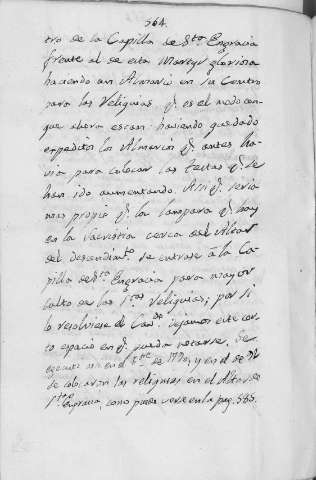 564.
tro de la Capilla de Sta Engracia
frente al de esta Martyr gloriosa
haciendo un Almario en su Centro
para las Reliquias q. es el modo con
que ahora estan: haviendo quedado
expeditos los Almarios q. antes ha-
via para colocar las
han ido aumentando. Assi q. seria
mas propio q. la lampara q. hay
en la Sacristia cerca del Altar
del descendimto. se entrase á la Ca-
pilla de Sta Engracia para mayor
culto de las Stas Reliquias; por si
lo resolviese el Cavdo. dejamos este cor-
to espacio en q. pueda notarse.
en el de 1770, y en el de
se colocaron las reliquias en el Altar de
Sta Engracia, como puede verse en la pag. 585.